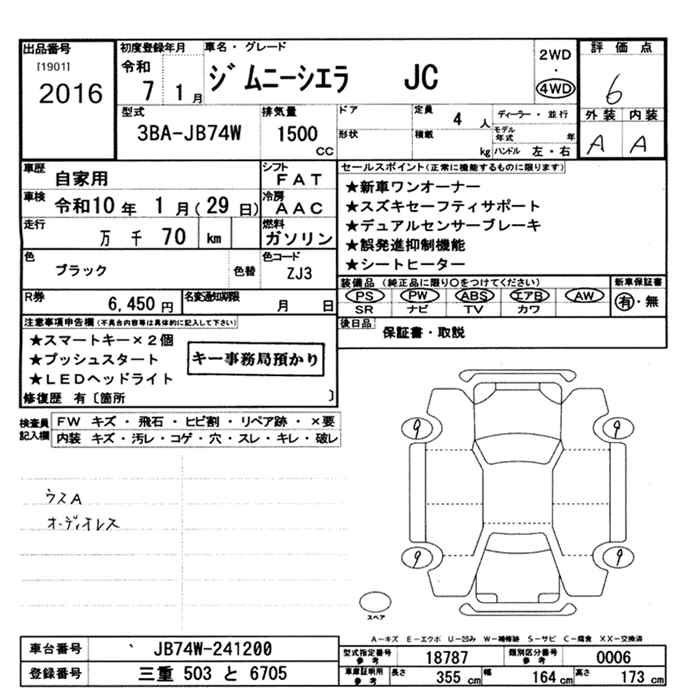 出品番号
[1901]
2016
初度登録年月
令和
7 1月
車名・グレード
ジムニーシエラ JC
2WD
・
4WD
評価点
6
外装 内装
A A
型式
3BA-JB74W
排気量
1500
CC
ドア
形状
定員 4 人
積載 kg
ディーラー・並行
モデル年式 年
ハンドル 左・右
車歴
自家用
シフト
FAT
車検
令和10年 1月(29日)
冷房
AAC
走行
万 千 70 km
燃料
ガソリン
色
ブラック
色替
色コード
ZJ3
R券
6,450円
名変通知期限
月 日
セールスポイント(正常に機能するものに限ります)
★新車ワンオーナー
★スズキセーフティサポート
★デュアルセンサーブレーキ
★誤発進抑制機能
★シートヒーター
装備品(純正品に限り○をつけてください)
PS PW ABS エアB AW
SR ナビ TV カワ
新車保証書
有・無
後日品
保証書・取説
注意事項申告欄(不具合内容等は具体的に記入して下さい)
★スマートキー×2個
★プッシュスタート
★LEDヘッドライト
キー事務局預かり
修復歴 有〔箇所 〕
検査員記入欄
FW キズ・飛石・ヒビ割・リペア跡・×要
内装 キズ・汚レ・コゲ・穴・スレ・キレ・破レ
ウスA
オーディオレス
9 9
9 9
スペア
A-キズ E-エクボ U-凹み W-補修跡 S-サビ C-腐食 XX-交換済
車台番号
JB74W-241200
登録番号
三重 503 と 6705
型式指定番号
参考
18787
類別区分番号
参考
0006
車庫証明用
参考
長さ 355 cm
幅 164 cm
高さ 173 cm